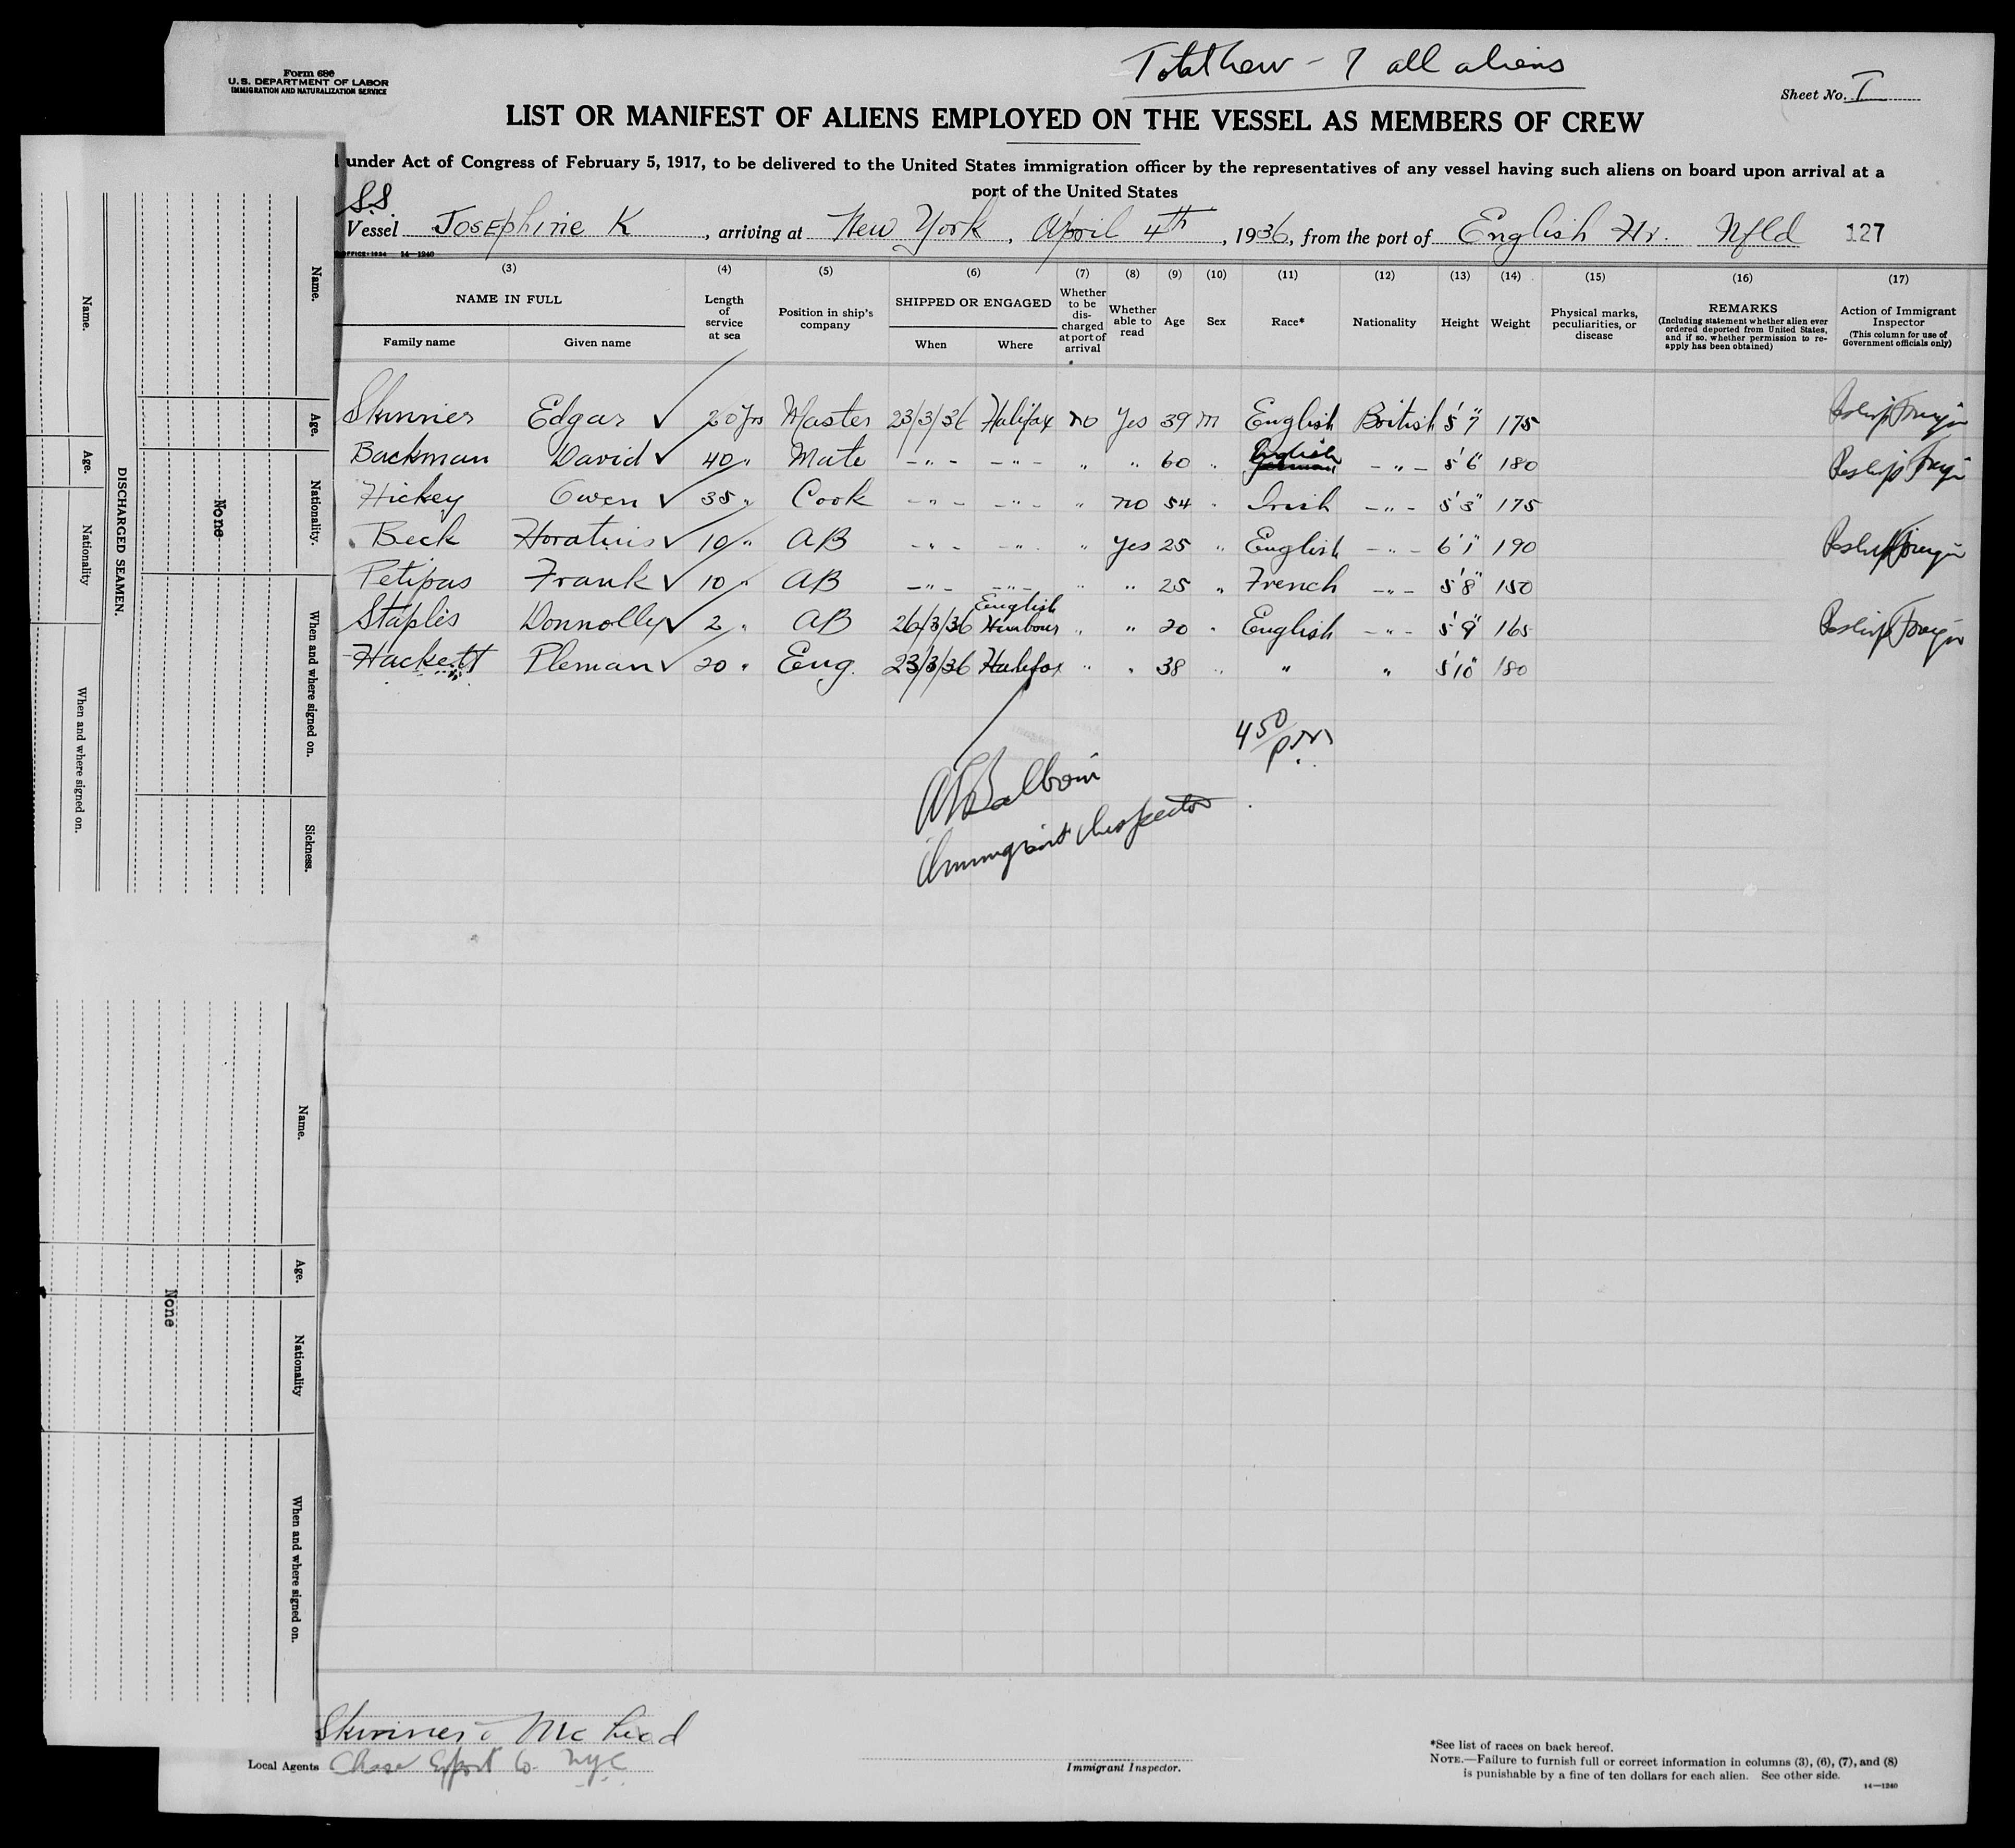 Form 680
U.S. DEPARTMENT OF LABOR
IMMIGRATION AND NATURALIZATION SERVICE
Total Crew - 7 all aliens
Sheet No. I
LIST OR MANIFEST OF ALIENS EMPLOYED ON THE VESSEL AS MEMBERS OF CREW
under Act of Congress of February 5, 1917, to be delivered to the United States immigration officer by the representatives of any vessel having such aliens on board upon arrival at a
port of the United States
S.S.
Vessel Josephine K, arriving at New York, April 4th, 1936, from the port of English Hr. Nfld 127
14-1240
(3) (4) (5) (6) (7) (8) (9) (10) (11) (12) (13) (14) (15) (16) (17)
NAME IN FULL
Family name Given name
Length of service at sea
Position in ship's company
SHIPPED OR ENGAGED
When Where
Whether to be discharged at port of arrival
Whether able to read
Age
Sex
Race*
Nationality
Height
Weight
Physical marks, peculiarities, or disease
REMARKS
(Including statement whether alien ever ordered deported from United States, and if so, whether permission to re-apply has been obtained)
Action of Immigrant Inspector
(This column for use of Government officials only)
Skinner Edgar ✓ 20 yrs Master 23/3/36 Halifax no Yes 39 m English British 5'7" 175
Backman David ✓ 40 " Mate -"- -"- " " 60 " English -"- 5'6" 180
Hickey Owen ✓ 35 " Cook -"- -"- " no 54 " Irish -"- 5'3" 175
Beck Horatius ✓ 10 " AB -"- -"- " Yes 25 " English -"- 6'1" 190
Petipas Frank ✓ 10 " AB -"- -"- " " 25 " French -"- 5'8" 150
Staples Donnolly ✓ 2 " AB 26/3/36 English Harbour " " 20 " English -"- 5'9" 165
Hackett Pleman ✓ 20 " Eng. 23/3/36 Halifax " " 38 " " " 5'10" 180
4 50 p.m.
Immigrant Inspector
DISCHARGED SEAMEN.
Name. Age. Nationality When and where signed on.
Name. Age. Nationality. When and where signed on. Sickness.
None
Name. Age. Nationality When and where signed on.
None
Skinner & McLeod
Local Agents Chase Export Co. NYC
Immigrant Inspector.
*See list of races on back hereof.
NOTE.—Failure to furnish full or correct information in columns (3), (6), (7), and (8)
is punishable by a fine of ten dollars for each alien. See other side.
14—1240